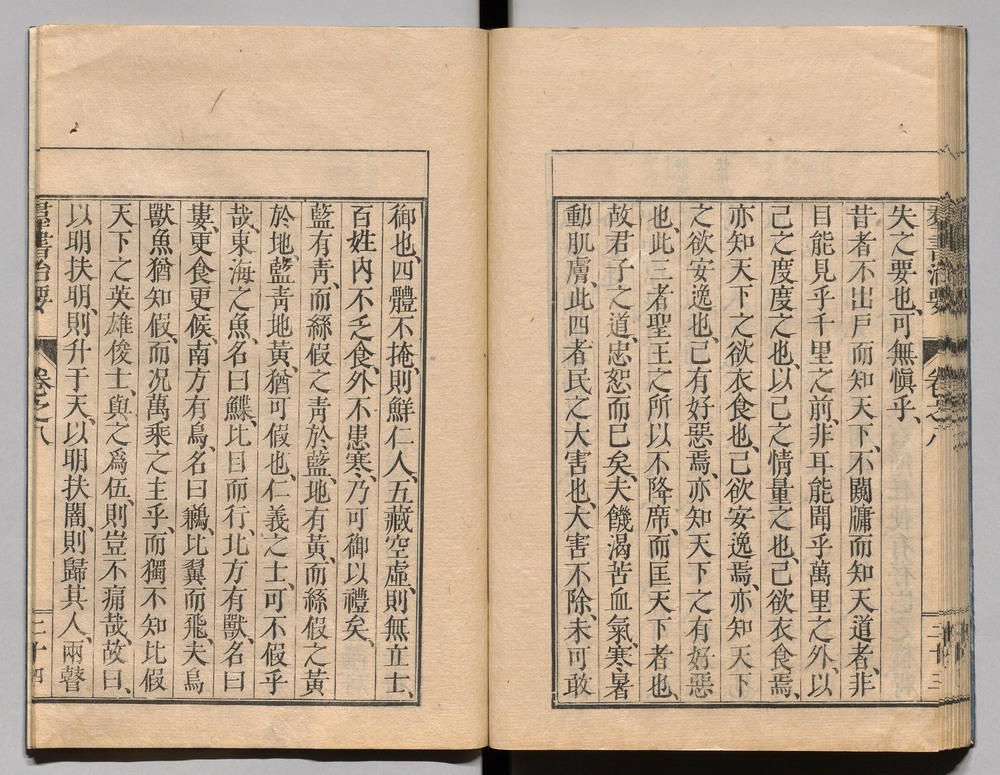 羣書治要
卷之八
二十三
失之要也、可無愼乎、
昔者不出戶而知天下、不闚牖而知天道者、非
目能見乎千里之前、非耳能聞乎萬里之外、以
己之度度之也、以己之情量之也、己欲衣食焉、
亦知天下之欲衣食也、己欲安逸焉、亦知天下
之欲安逸也、己有好惡焉、亦知天下之有好惡
也、此三者聖王之所以不降席、而匡天下者也、
故君子之道、忠恕而已矣、夫饑渴苦血氣、寒暑
動肌膚、此四者民之大害也、大害不除、未可敢
御也、四體不掩、則鮮仁人、五藏空虛、則無立士、
百姓內不乏食、外不患寒、乃可御以禮矣、
藍有靑、而絲假之靑於藍、地有黃、而絲假之黃
於地、藍靑地黃、猶可假也、仁義之士、可不假乎
哉、東海之魚、名曰鰈、比目而行、北方有獸、名曰
婁、更食更候、南方有鳥、名曰鶼、比翼而飛、夫鳥
獸魚猶知假、而況萬乘之主乎、而獨不知比假
天下之英雄俊士、與之爲伍、則豈不痛哉、故曰、
以明扶明、則升于天、以明扶闇、則歸其人、兩瞽
羣書治要
卷之八
二十四